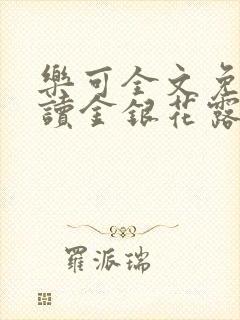 樂可全文免
讀金銀花露
羅派瑞